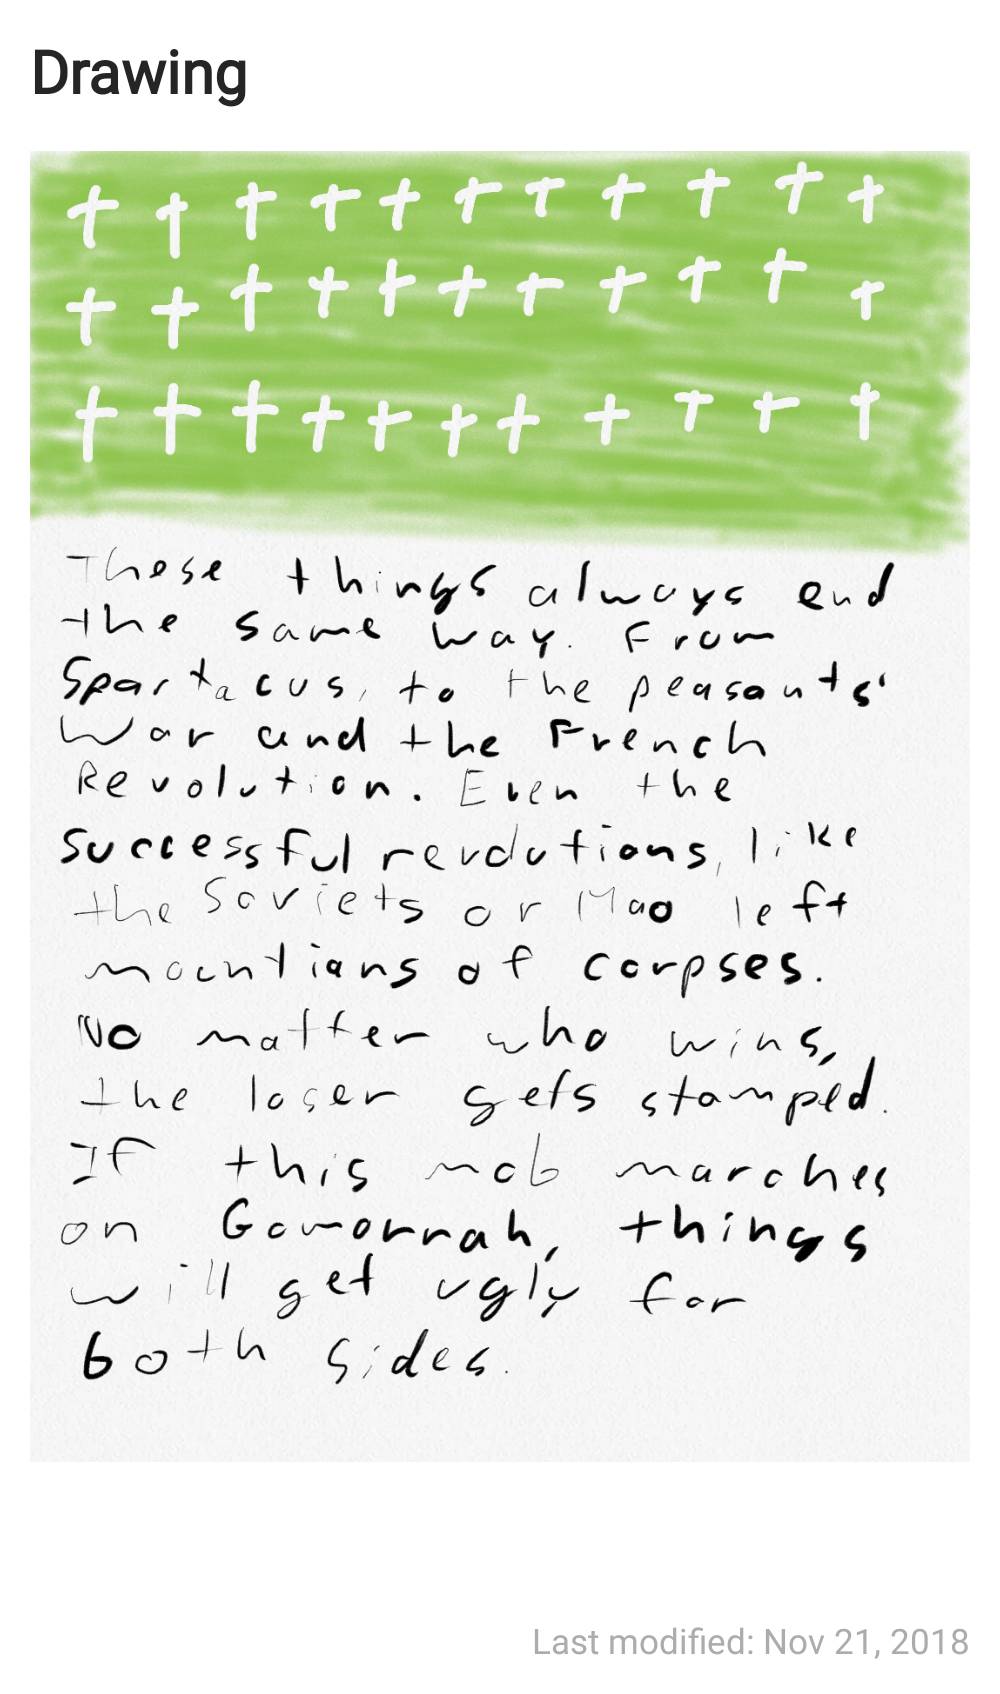 Drawing
These things always end
the same way. From
Spartacus, to the peasants'
War and the French
Revolution. Even the
successful revolutions, like
the Soviets or Mao left
mountians of corpses.
No matter who wins,
the loser gets stomped.
If this mob marches
on Gomorrah, things
will get ugly for
both sides.
Last modified: Nov 21, 2018